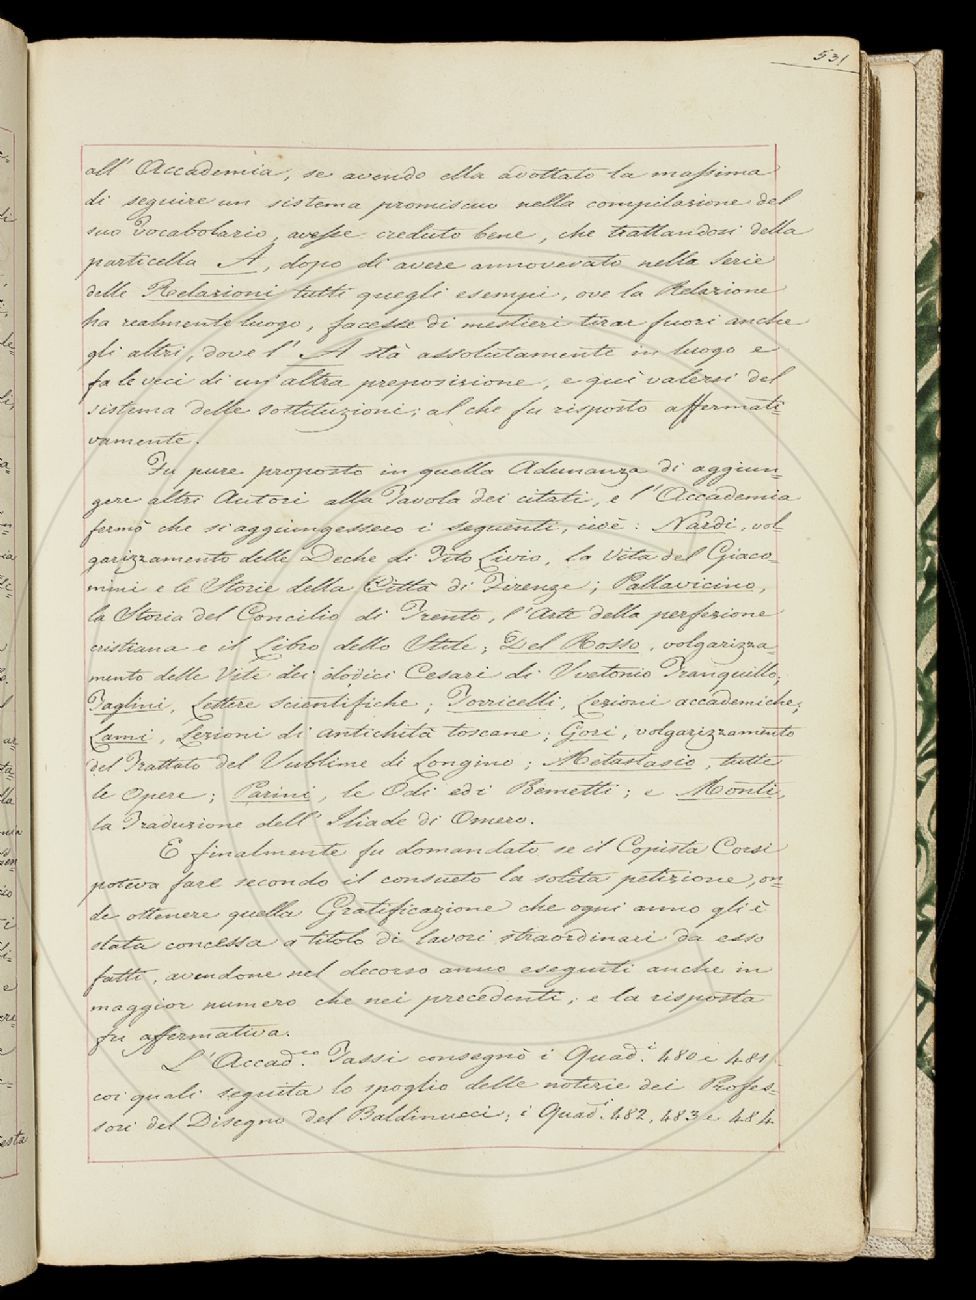 531
all' Accademia, se avendo ella adottato la massima
di seguire un sistema promiscuo nella compilazione del
suo Vocabolario, avesse creduto bene, che trattandosi della
particella A, dopo di avere annoverato nella Serie
delle Relazioni tutti quegli esempi, ove la Relazione
ha realmente luogo, facesse di mestieri tirar fuori anche
gli altri, dove l' A stà assolutamente in luogo e
fa le veci di un' altra preposizione, e quì valersi del
sistema delle sostituzioni; al che fu risposto affermati-
vamente.
Fu pure proposto in quella Adunanza di aggiun-
gere altri Autori alla Tavola dei citati, e l'Accademia
fermò che si aggiungessero i seguenti, cioè: Nardi, vol
garizzamento delle Deche di Tito Livio, la Vita del Giaco-
mini e le Storie della Città di Firenze; Pallavicino,
la Storia del Concilio di Trento, l'Arte della perfezione
cristiana e il Libro dello Stile; Del Rosso, volgarizza-
mento delle Vite dei dodici Cesari di Svetonio Tranquillo;
Taglini, Lettere scientifiche; Torricelli, Lezioni accademiche;
Lami, Lezioni di antichità toscane; Gori, volgarizzamento
del Trattato del Sublime di Longino; Metastasio, tutte
le Opere; Parini, le Odi ed i Sermetti; e Monti,
la Traduzione dell' Iliade di Omero.
E finalmente fu domandato se il Copista Corsi
poteva fare secondo il consueto la solita petizione, on-
de ottenere quella Gratificazione che ogni anno gli è
stata concessa a titolo di lavori straordinari da esso
fatti, avendone nel decorso anno eseguiti anche in
maggior numero che nei precedenti; e la risposta
fu affermativa.
L'Accad.co Tassi consegnò i Quad.i 480 e 481
coi quali seguita lo spoglio delle notizie dei Profes-
sori del Disegno del Baldinucci; i Quad.i 482, 483 e 484